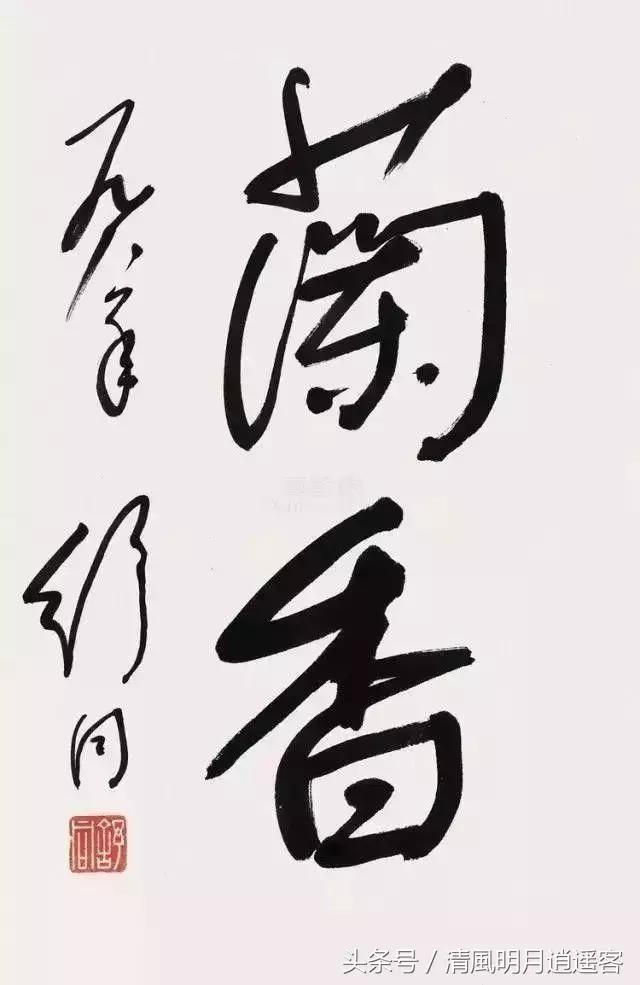 蘭香
一九八年
舒同
舒同
头条号 / 清風明月逍遥客